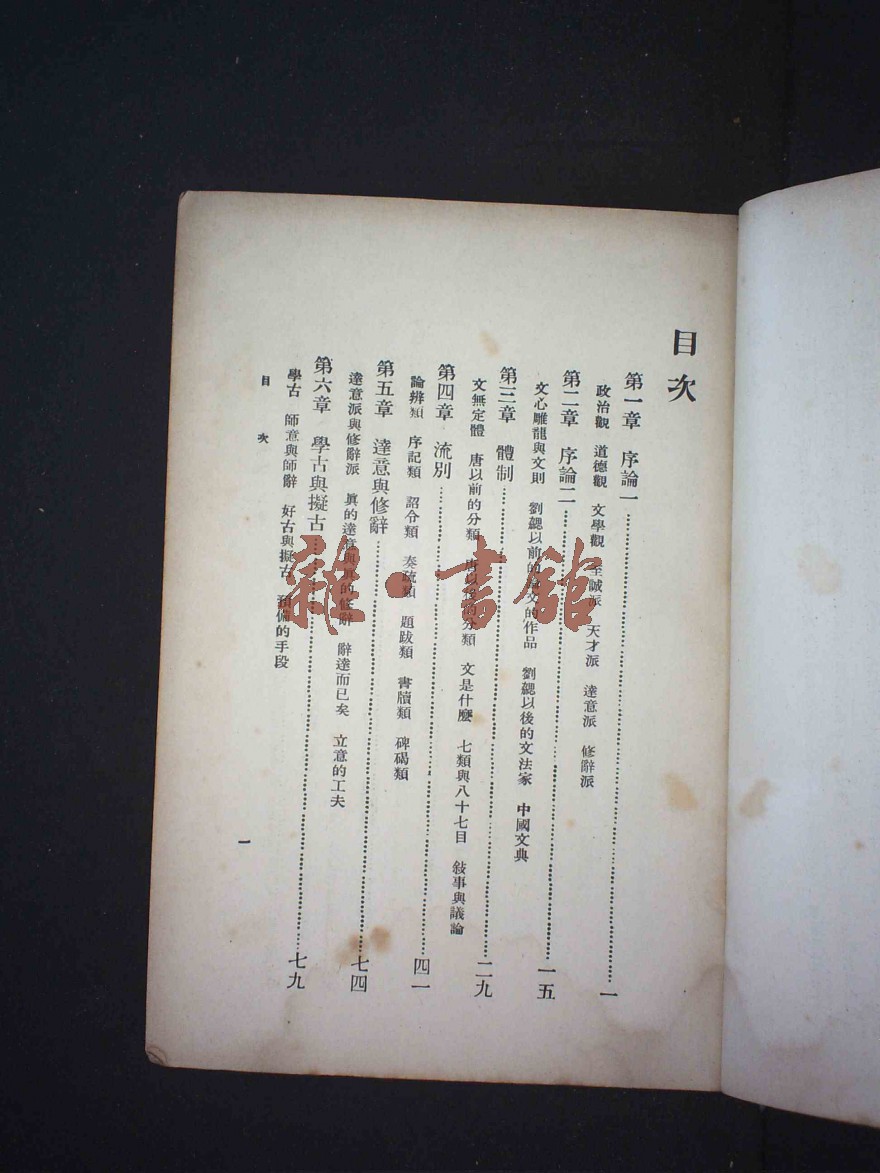 目次
第一章 序論一 一
政治觀 道德觀 文學觀 至誠派 天才派 達意派 修辭派
第二章 序論二 一五
文心雕龍與文則 劉勰以前的論文的作品 劉勰以後的文法家 中國文典
第三章 體制 二九
文無定體 唐以前的分類 唐以後的分類 文是什麽 七類與八十七目 敍事與議論
第四章 流別 四一
論辨類 序記類 詔令類 奏疏類 題跋類 書牘類 碑碣類
第五章 達意與修辭 七四
達意派與修辭派 眞的達意與眞的修辭 辭達而已矣 立意的工夫
第六章 學古與擬古 七九
學古 師意與師辭 好古與擬古 預備的手段
目次
一
雜·書館